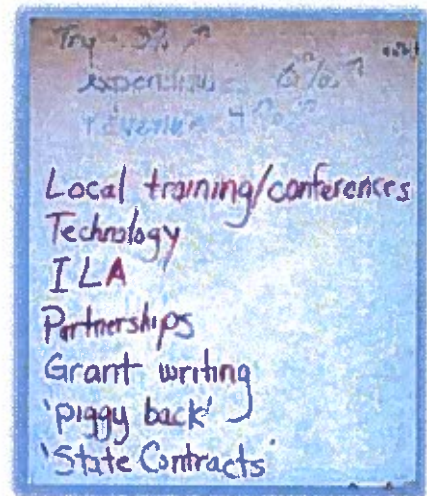 Try - 3% ↑
expenditures - 6% ↑
revenue - 4% ↑
Local training/conferences
Technology
ILA
Partnerships
Grant writing
'piggy back'
'State Contracts'